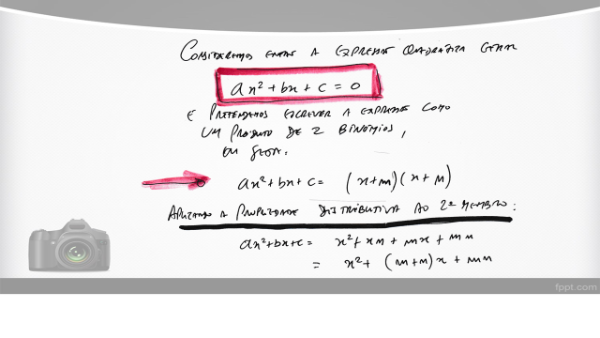 CONSIDEREMOS ENTÃO A EXPRESSÃO QUADRÁTICA GERAL
ax² + bx + c = 0
E PRETENDEMOS ESCREVER A EXPRESSÃO COMO
UM PRODUTO DE 2 BINÓMIOS,
OU SEJA:
ax² + bx + c = (x + m)(x + n)
APLICANDO A PROPRIEDADE DISTRIBUTIVA AO 2º MEMBRO:
ax² + bx + c = x² + xn + mx + mn
= x² + (m + n)x + mn
fppt.com